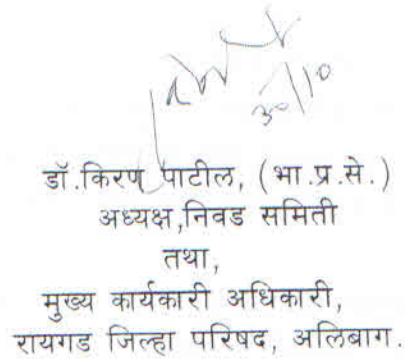 ३०/१०
डॉ.किरण पाटील, (भा.प्र.से.)
अध्यक्ष,निवड समिती
तथा,
मुख्य कार्यकारी अधिकारी,
रायगड जिल्हा परिषद, अलिबाग.